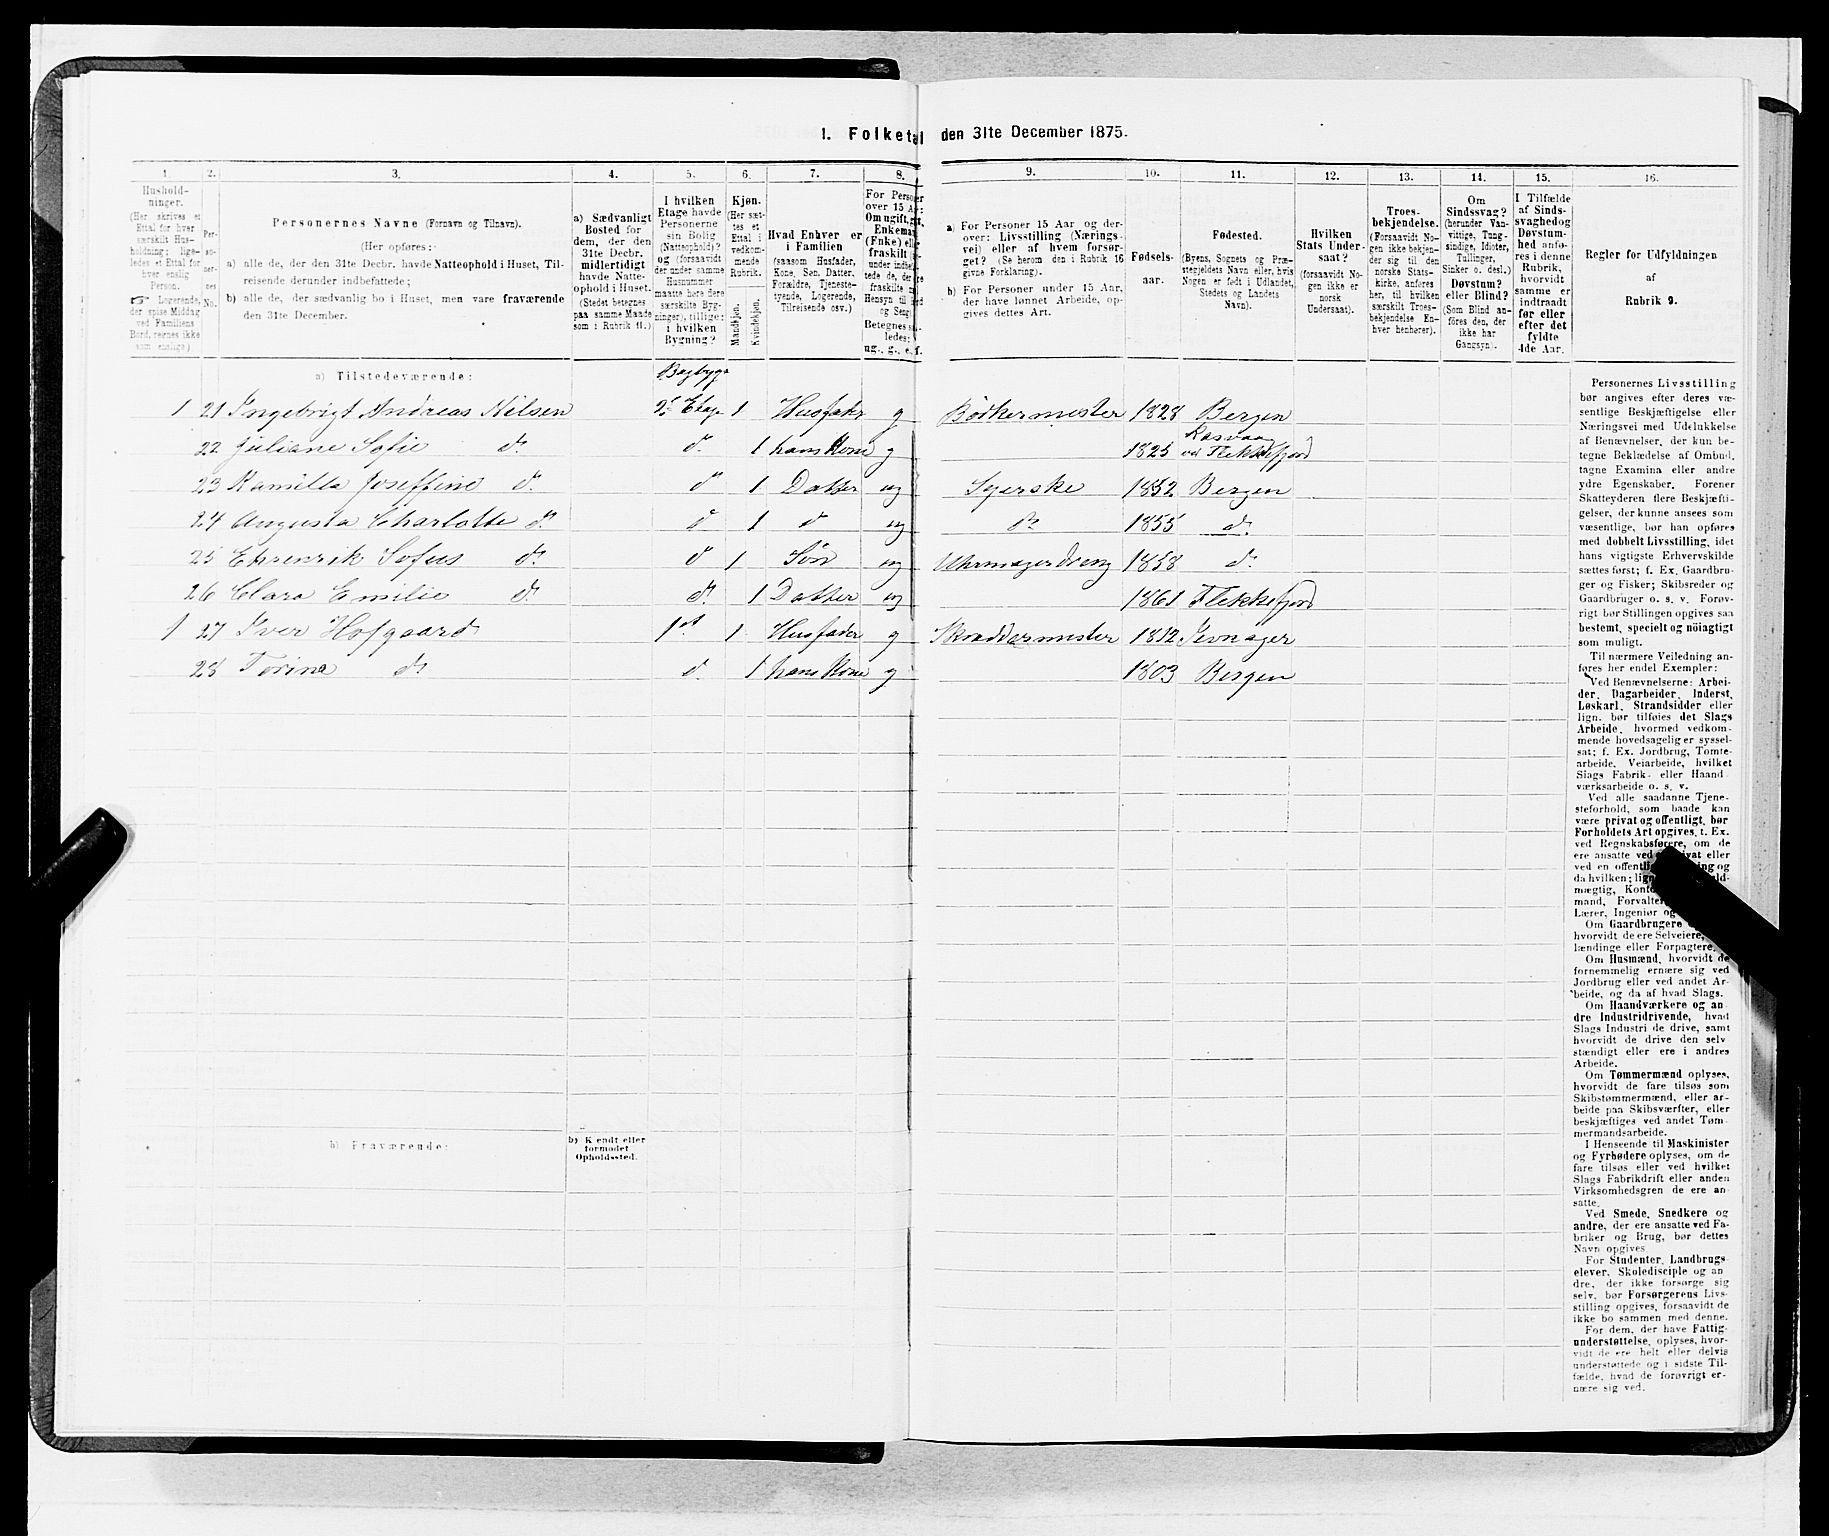 1. Folketal den 31te December 1875.
1. 2. 3. 4. 5. 6. 7. 8. 9. 10. 11. 12. 13. 14. 15. 16.
Hushold-
ninger.
(Her skrives et
Ettal for hver
særskilt Hus-
holdning; lige-
ledes et Ettal for
hver enslig
Person.
☞ Logerende,
der spise Middag
ved Familiens
Bord, regnes ikke
som enslige.)
Per-
so-
ner-
nes
No.
Personernes Navne (Fornavn og Tilnavn).
(Her opføres:
a) alle de, der den 31te Decbr. havde Natteophold i Huset, Til-
reisende derunder indbefattede;
b) alle de, der sædvanlig bo i Huset, men vare fraværende
den 31te December.
a) Sædvanligt
Bosted for
dem, der den
31te Decbr.
midlertidigt
havde Natte-
ophold i Huset.
(Stedet betegnes
paa samme Maade
som i Rubrik 11.)
I hvilken
Etage havde
Personerne
sin Bolig
(Natteophold)?
og (forsaavidt
der under samme
Husnummer
maatte høre flere
særskilte Byg-
ninger), tillige:
i hvilken
Bygning?
Kjøn.
(Her sæt-
tes et
Ettal i
vedkom-
mende
Rubrik.
Mandkjøn.
Kvindekjøn.
Hvad Enhver er
i Familien
(saasom Husfader,
Kone, Søn, Datter,
Forældre, Tjeneste-
tyende, Logerende,
Tilreisende osv.)
For Personer
over 15 Aar:
Om ugift, gift,
Enkemand
(Enke) eller
fraskilt
Betegnes saa-
ledes:
ug., g., e., f.
a) For Personer 15 Aar og der-
over: Livsstilling (Nærings-
vei) eller af hvem forsør-
get? (Se herom den i Rubrik 16
givne Forklaring).
b) For Personer under 15 Aar,
der have lønnet Arbeide, op-
gives dettes Art.
Fødsels-
aar.
Fødested.
(Byens, Sognets og Præ-
stegjeldets Navn eller, hvis
Nogen er født i Udlandet,
Stedets og Landets
Navn).
Hvilken
Stats Under-
saat?
(forsaavidt No-
gen ikke er
norsk
Undersaat).
Troes-
bekjendelse.
(Forsaavidt No-
gen ikke bekjen-
der sig til den
norske Stats-
kirke, anføres
her, til hvilken
særskilt Troes-
bekjendelse En-
hver henhører).
Om
Sindssvag?
(herunder Van-
vittige, Tung-
sindige, Idioter,
Tullinger,
Sinker o. desl.)
Døvstum?
eller Blind?
(Som Blind an-
føres den, der
ikke har
Gangsyn).
I Tilfælde
af Sinds-
svaghed og
Døvstum-
hed anfø-
res i denne
Rubrik,
hvorvidt
samme er
indtraadt
før eller
efter det
fyldte
4de Aar.
Regler for Udfyldningen
af
Rubrik 9.
a) Tilstedeværende:
Bagbygn
1 21 Ingebrigt Andreas Nilsen 2' Etage 1 Husfader g Bødkermester 1828 Bergen
22 Juliane Sofie do do 1 hans Kone g 1825 Rasvaag ved Flekkefjord
23 Kamilla Joseffine do do 1 Datter ug Syerske 1852 Bergen
24 Augusta Charlotte do do 1 do ug do 1855 do
25 Ehrenrik Sofus do do 1 Søn ug Uhrmagerdreng 1858 do
26 Clara Emilie do do 1 Datter ug 1861 Flekkefjord
1 27 Iver Hofgaard 1st 1 Husfader g Skræddermester 1812 Jevnager
28 Torina do do 1 hans Kone g 1803 Bergen
b) Fraværende:
b) Kendt eller
formodet
Opholdssted.
Personernes Livsstilling
bør angives efter deres væ-
sentlige Beskjæftigelse eller
Næringsvei med Udelukkelse
af Benævnelser, der kun be-
tegne Beklædelse af Ombud,
tagne Examina eller andre
ydre Egenskaber. Forener
Skatteyderen flere Beskjæfti-
gelser, der kunne ansees som
væsentlige, bør han opføres
med dobbelt Livsstilling, idet
hans vigtigste Erhvervskilde
sættes først; f. Ex. Gaardbru-
ger og Fisker; Skibsreder og
Gaardbruger o. s. v. Forøv-
rigt bør Stillingen opgives saa
bestemt, specielt og nøiagtigt
som muligt.
Til nærmere Veiledning an-
føres her endel Exempler:
Ved Benævnelserne: Arbei-
der, Dagarbeider, Inderst,
Løskarl, Strandsidder eller
lign. bør tilføies det Slags
Arbeide, hvormed vedkom-
mende hovedsagelig er syssel-
sat; f. Ex. Jordbrug, Tomte-
arbeide, Veiarbeide, hvilket
Slags Fabrik- eller Haand-
værksarbeide o. s. v.
Ved alle saadanne Tjene-
steforhold, som baade kan
være privat og offentligt, bør
Forholdets Art opgives, t. Ex.
ved Regnskabsførere, om de
ere ansatte ved privat eller
ved en offentlig og
da hvilken;
mægtig,
mand, Forvalter,
Lærer, Ingeniør og
Om Gaardbrugere
hvorvidt de ere Selveiere,
lændinge eller Forpagtere.
Om Husmænd, hvorvidt de
fornemmelig ernære sig ved
Jordbrug eller ved andet Ar-
beide, og da af hvad Slags.
Om Haandværkere og an-
dre Industridrivende, hvad
Slags Industri de drive, samt
hvorvidt de drive den selv-
stændigt eller ere i andres
Arbeide.
Om Tømmermænd oplyses,
hvorvidt de fare tilsøs som
Skibstømmermænd, eller ar-
beide paa Skibsværfter, eller
beskjæftiges ved andet Tøm-
mermandsarbeide.
I Henseende til Maskinister
og Fyrbødere oplyses, om de
fare tilsøs eller ved hvilket
Slags Fabrikdrift eller anden
Virksomhedsgren de ere an-
satte.
Ved Smede, Snedkere og
andre, der ere ansatte ved Fa-
briker og Brug, bør dettes
Navn opgives.
For Studenter, Landbrugs-
elever, Skoledisciple og an-
dre, der ikke forsørge sig
selv, bør Forsørgerens Livs-
stilling opgives, forsaavidt de
ikke bo sammen med denne.
For dem, der have Fattig-
understøttelse, oplyses, hvor-
vidt de ere helt eller delvis
understøttede og i sidste Til-
fælde, hvad de forøvrigt er-
nære sig ved.